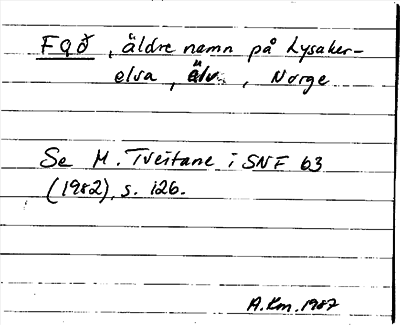 Fǫð, äldre namn på Lysaker-
elva, älv, Norge
Se M. Tveitane i SNF 63
(1982), s. 126.
A.Km.1987